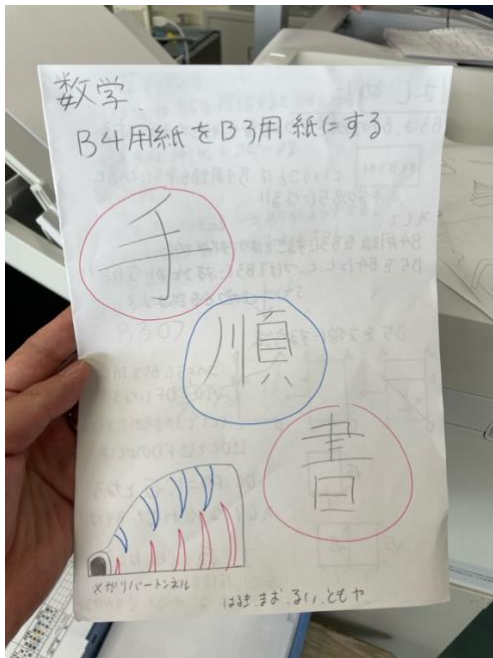 数学、
B4用紙をB3用紙にする
手
順
書
※ガリバートンネル
はるき、まお、るい、ともや